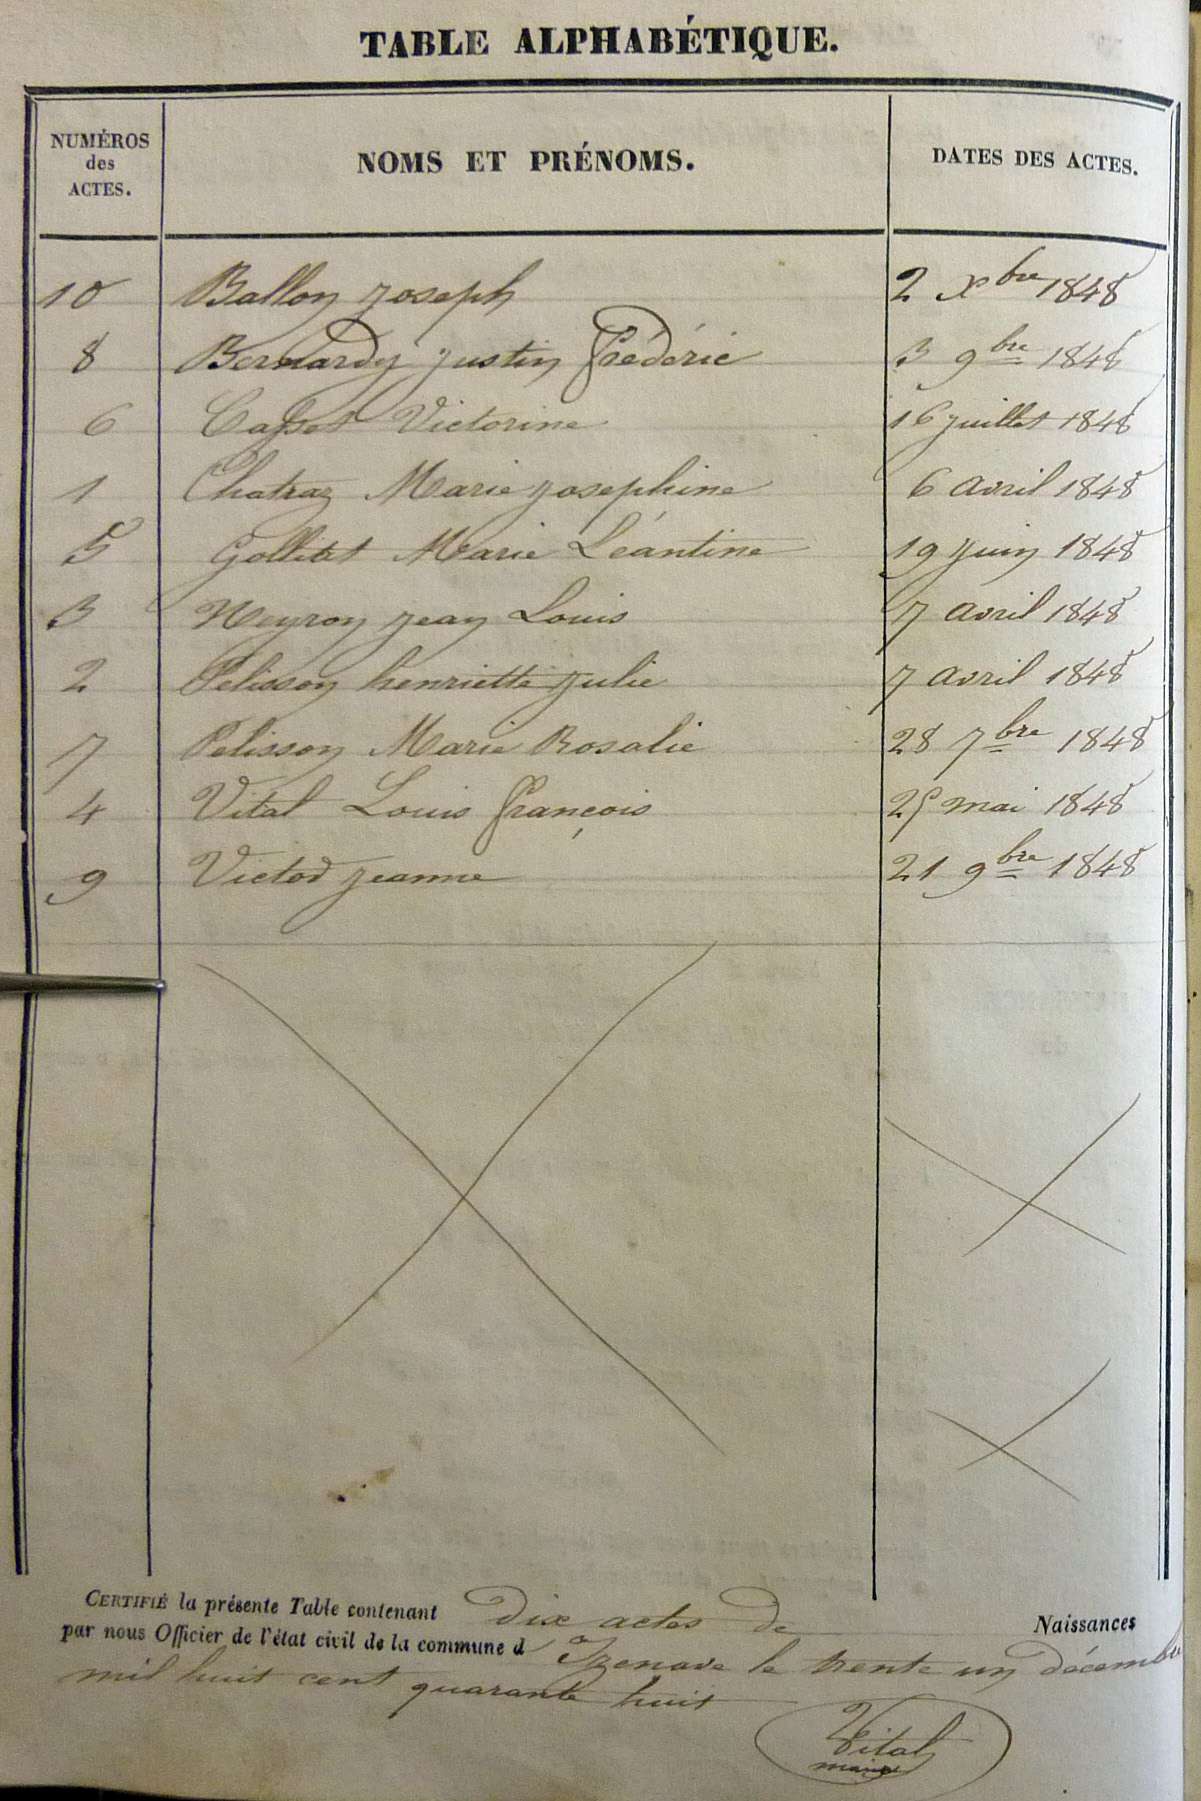 TABLE ALPHABÉTIQUE.
NUMÉROS des ACTES. NOMS ET PRÉNOMS. DATES DES ACTES.
10 Ballon joseph 2 Xbre 1848
8 Bernardy justin frédéric 3 9bre 1848
6 Casset Victorine 16 juillet 1848
1 Chatraz Marie josephine 6 avril 1848
5 Gollétet Marie Léantine 19 juin 1848
3 Neyron jean Louis 7 avril 1848
2 Pelisson henriette julie 7 avril 1848
7 Pelisson Marie Rosalie 28 7bre 1848
4 Vital Louis françois 25 mai 1848
9 Victod jeanne 21 9bre 1848
CERTIFIÉ la présente Table contenant dix actes de Naissances
par nous Officier de l'état civil de la commune d'Izenave le trente un décembre
mil huit cent quarante huit
Vital
maire